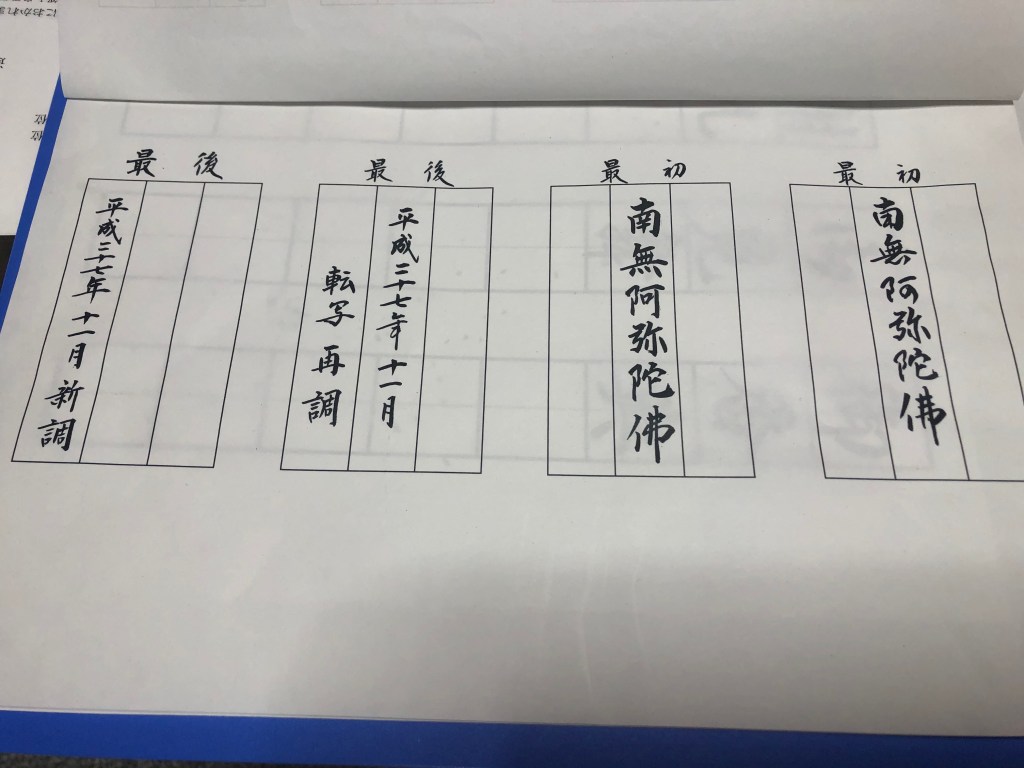 最初
南無阿弥陀佛
最初
南無阿弥陀佛
最後
平成二十七年十一月
転写再調
最後
平成二十七年十一月新調